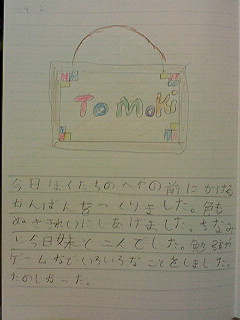 ToMoKi
今日ぼくたちのへやの前にかける
かんばんをつくりました。色も
ぬってきれいにしあげました。ちなみ
に今日妹と二人でした。勉強や
ゲームなどいろいろなことをしました。
たのしかった。